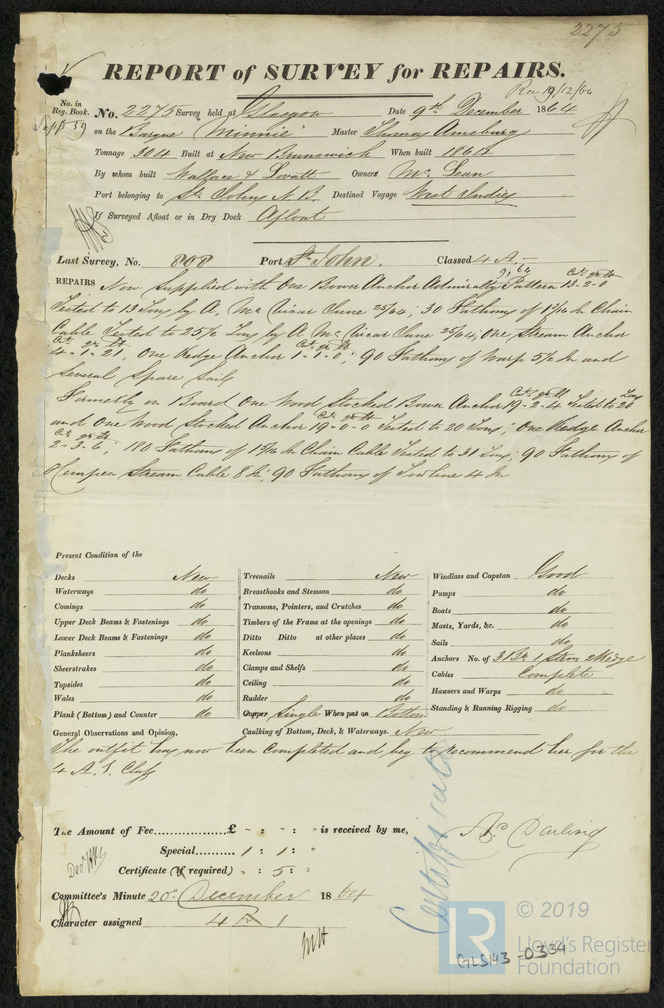 2275
REPORT of SURVEY for REPAIRS.
Rec 19/12/64
No. in Reg. Book.
No. 2275 Survey held at Glasgow Date 9th December 1864
on the Barque "Minnie" Master Thomas Amsbury
Tonnage 304 Built at New Brunswick When built 1864
By whom built Wallace & Lovatt Owners Mc Lean
Port belonging to St Johns N.B. Destined Voyage West Indies
If Surveyed Afloat or in Dry Dock Afloat
Last Survey, No. 808 Port St John. Classed 4 A.
9, 64
REPAIRS Now Supplied with One Bower Anchor Admiralty Pattern 13-2-0
Tested to 13 Tons by A. Mc Vicar June 25/64; 30 Fathoms of 1 5/16 In Chain
Cable Tested to 25 Tons by A Mc Vicar June 25/64; One Stream Anchor
4-1-21; One Kedge Anchor 1-1-0; 90 Fathoms of Warp 5 1/2 In and
Several Spare Sails
Formerly on Board One Wood Stocked Bower Anchor 19-2-4 Tested to 20 Tons
and One Wood Stocked Anchor 19-0-0 Tested to 20 Tons; One Kedge Anchor
2-3-6; 180 Fathoms of 1 5/16 In Chain Cable Tested to 31 Tons; 90 Fathoms of
Hempen Stream Cable 8 In; 90 Fathoms of Towline 4 In
Present Condition of the
Decks New Treenails New Windlass and Capstan Good
Waterways do Breasthooks and Stemson do Pumps do
Comings do Transoms, Pointers, and Crutches do Boats do
Upper Deck Beams & Fastenings do Timbers of the Frame at the openings do Masts, Yards, &c. do
Lower Deck Beams & Fastenings do Ditto Ditto at other places do Sails do
Planksheers do Keelsons do Anchors No. of 3 Br 1 Strm & Kedge
Sheerstrakes do Clamps and Shelfs do Cables Complete
Topsides do Ceiling do Hawsers and Warps do
Wales do Rudder do Standing & Running Rigging do
Plank (Bottom) and Counter do Copper Single When put on Bottom
General Observations and Opinion, Caulking of Bottom, Deck, & Waterways. New
The outfit has now been completed and beg to recommend her for the
4 A. 1. Class
The Amount of Fee £ " : " : " is received by me,
Special 1 : 1 :
Certificate (if required) " : 5 :
Committee's Minute 20th December 1864
Character assigned 4 A 1
© 2019
LR
Lloyd's Register
Foundation
GLS143-0334